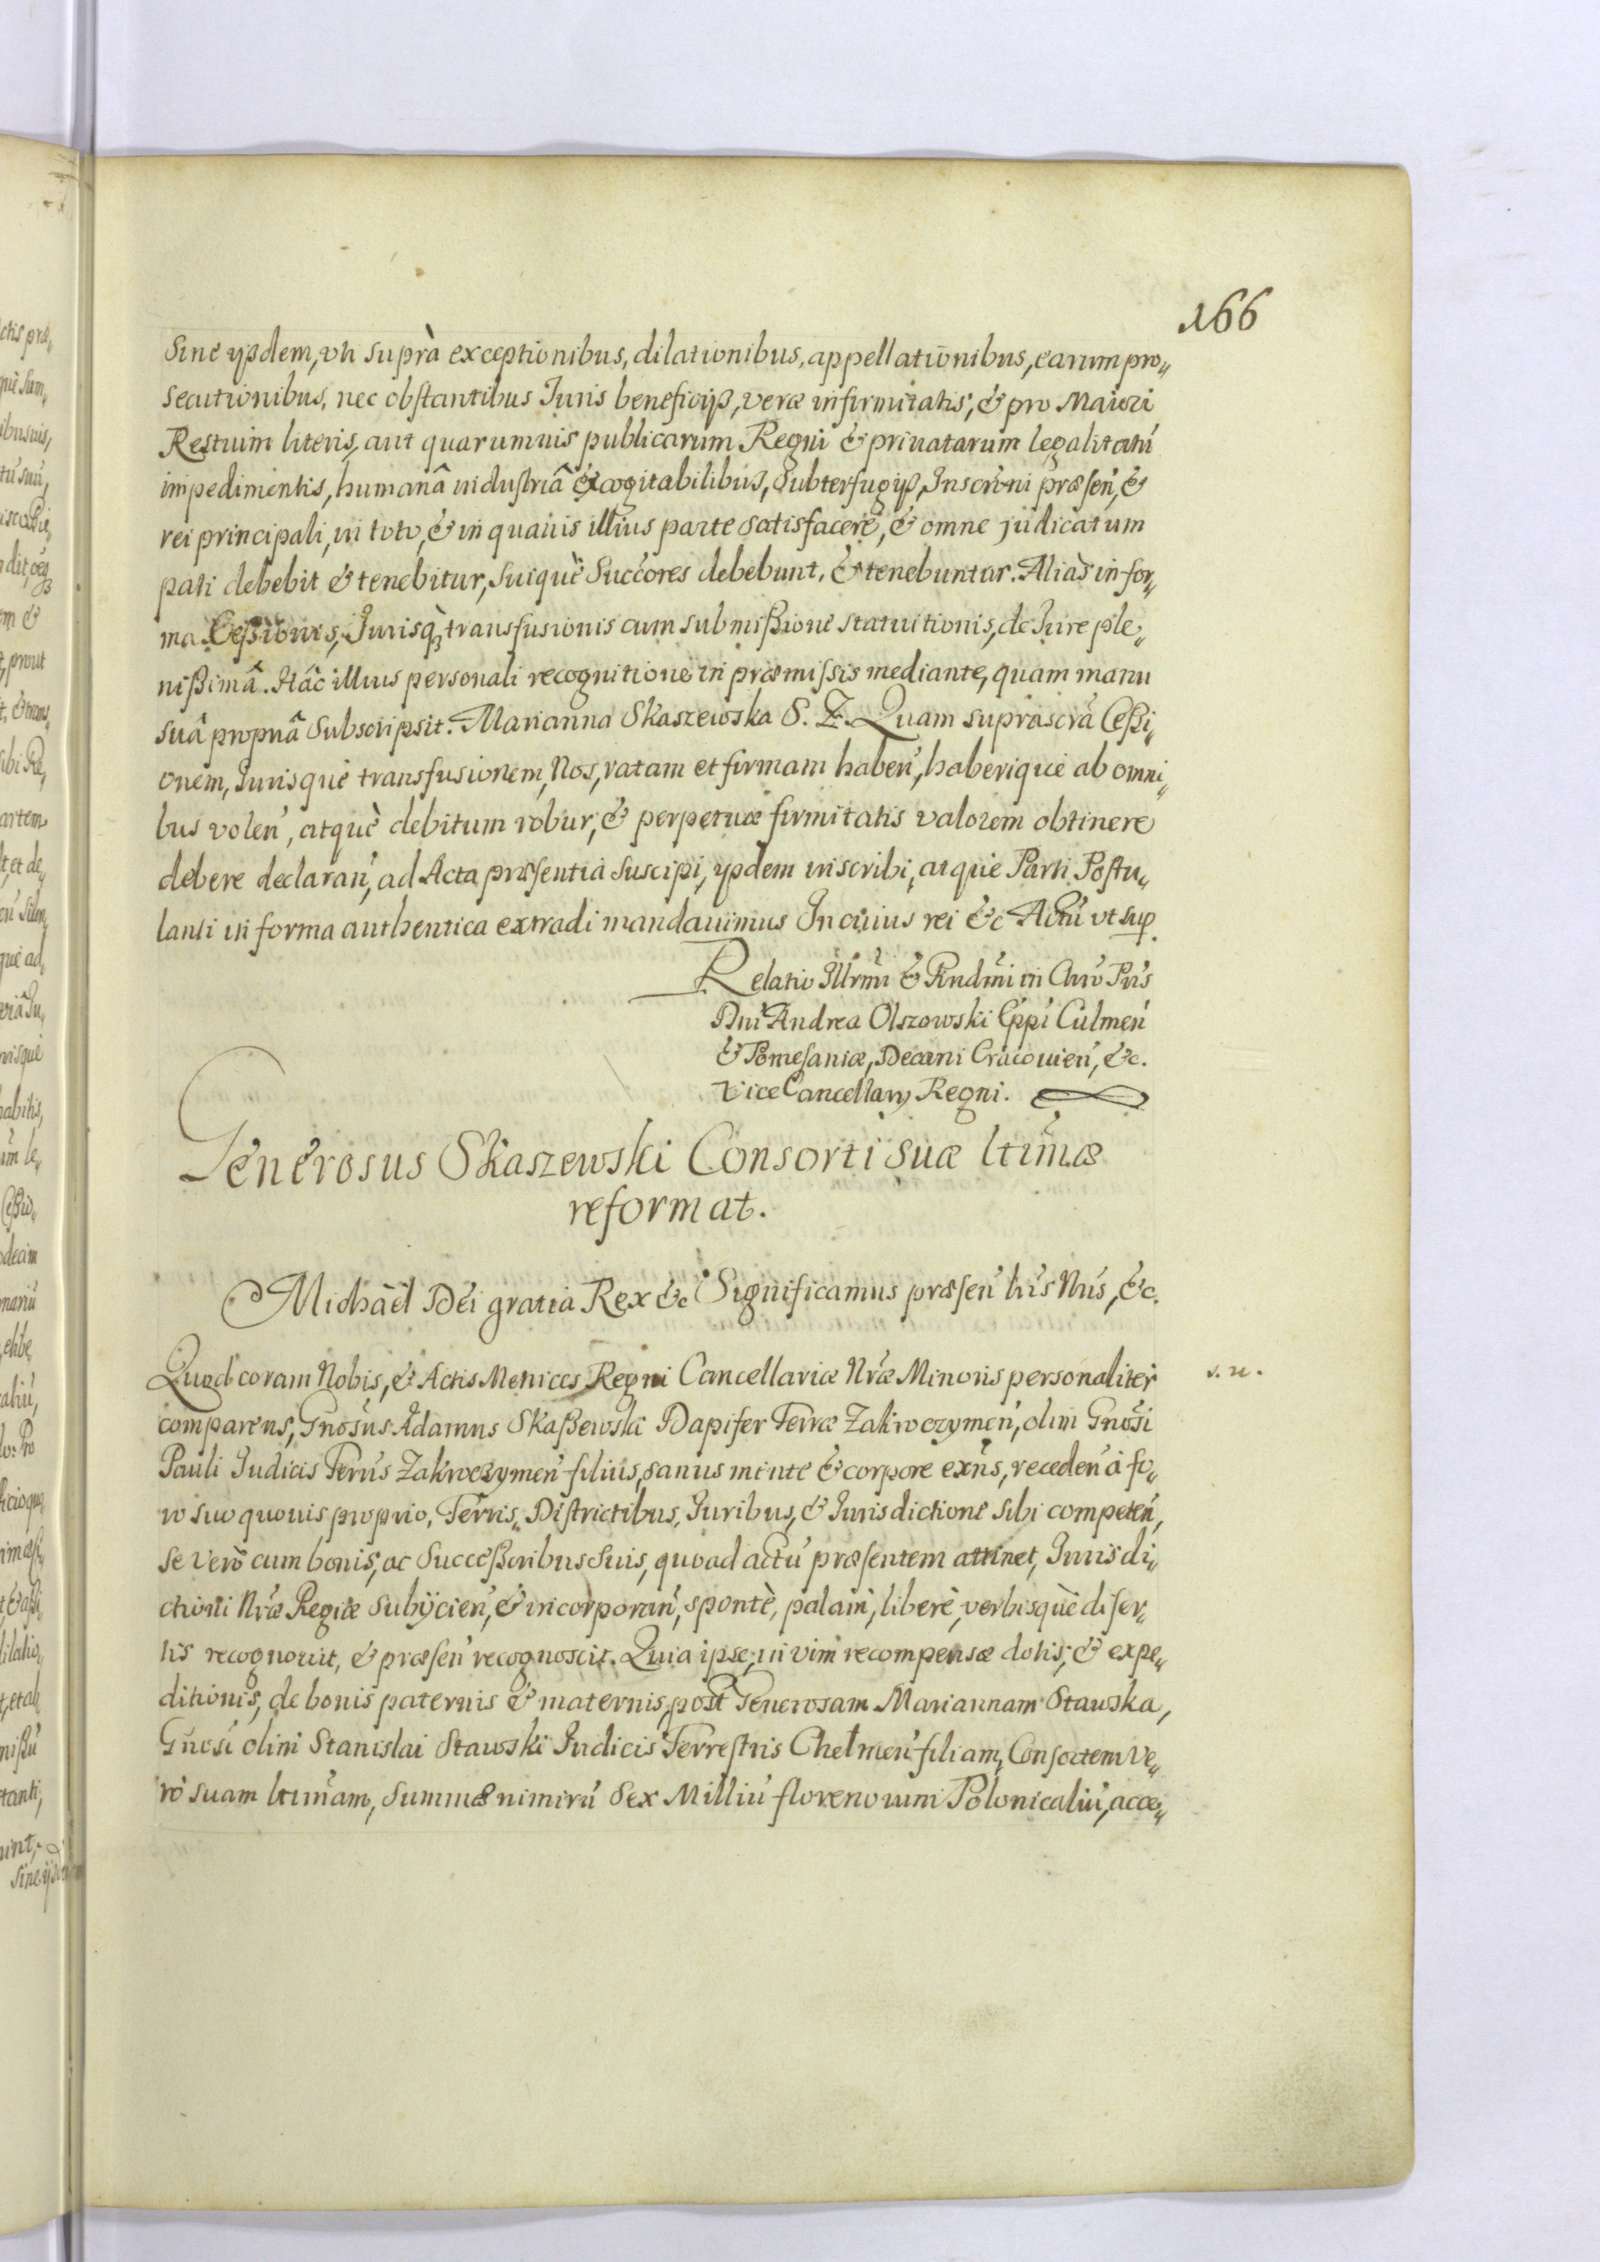 166
Sine ijsdem, vti suprà exceptionibus, dilationibus, appellationibus, earum pro„
secutionibus, nec obstantibus Juris beneficijß, veræ infirmitatis, & pro Maiori
Restuim literis, aut quarumuis publicarum Regni & priuatarum legalitatũ
impedimentis, humanâ industriâ excogitabilibus, Subterfugijß, Inscrõni præsen̄, &
rei principali, in toto, & in quauis illius parte satisfacere, & omne judicatum
pati debebit & tenebitur, suiquè Succ̃ores debebunt, & tenebuntur. Aliàs in for„
ma Ceßionis, Jurisq̃ transfusionis cum submißione statuitionis, de Jure ple„
nißimâ. Hâc illius personali recognitione in præmissis mediante, quam manu
suâ propriâ Subscripsit. Marianna Skaszewska S. Z. Quam suprascrã Ceßi„
onem, Jurisquè transfusionem, Nos, ratam et firmam haben̄, haberique ab omni„
bus volen̄, atquè debitum robur, & perpetuæ firmitatis valorem obtinere
debere declaran̄, ad Acta præsentia suscipi, ijsdem inscribi, atque Parti Postu„
lanti in forma authentica extradi mandauimus In cuius rei &c Actũ vt sup.
Relatio Illrm̃i & Rndm̃i in Chrõ Pris
Dni Andrea Olszowski Epp̃i Culmen̄
& Pomesaniæ, Decani Cracouien̄, &c.
Vice Cancellarij Regni.
Generosus Skaszewski Consorti suæ ltĩmæ
reformat.
Michaël Dei gratia Rex &c Significamus præsen̄ lrĩs Nrĩs, &c.
Quod coram Nobis, & Actis Metrices Regni Cancellariæ Nræ Minoris personaliter
s. n.
comparens, Gnosus Adamus Skaßewski Dapifer Terræ Zakroczymen̄, olim Gnosi
Pauli Judicis Terris Zakroczymen̄ filius, sanus mente & corpore exñs, receden̄ à fo„
ro suo quouis proprio, Terris, Districtibus, Juribus, & Jurisdictione sibi competen̄,
se verò cum bonis, ac Succeßoribus suis, quoad actũ præsentem attinet, Jurisdi„
ctioni Nræ Regiæ subijcien̄, & incorporan̄, spontè, palam, liberè, verbisquè diser„
tis recognouit, & præsen̄ recognoscit. Quia ipse, in vim recompensæ dotis, & expe„
ditionis, de bonis paternis & maternis, post Generosam Mariannam Stawska,
Gnosi olim Stanislai Stawski Judicis Terrestris Chelmen̄ filiam, Consortem ve„
ro suam ltĩmam, summæ nimirũ Sex Milliũ florenorum Polonicaliũ, acce„